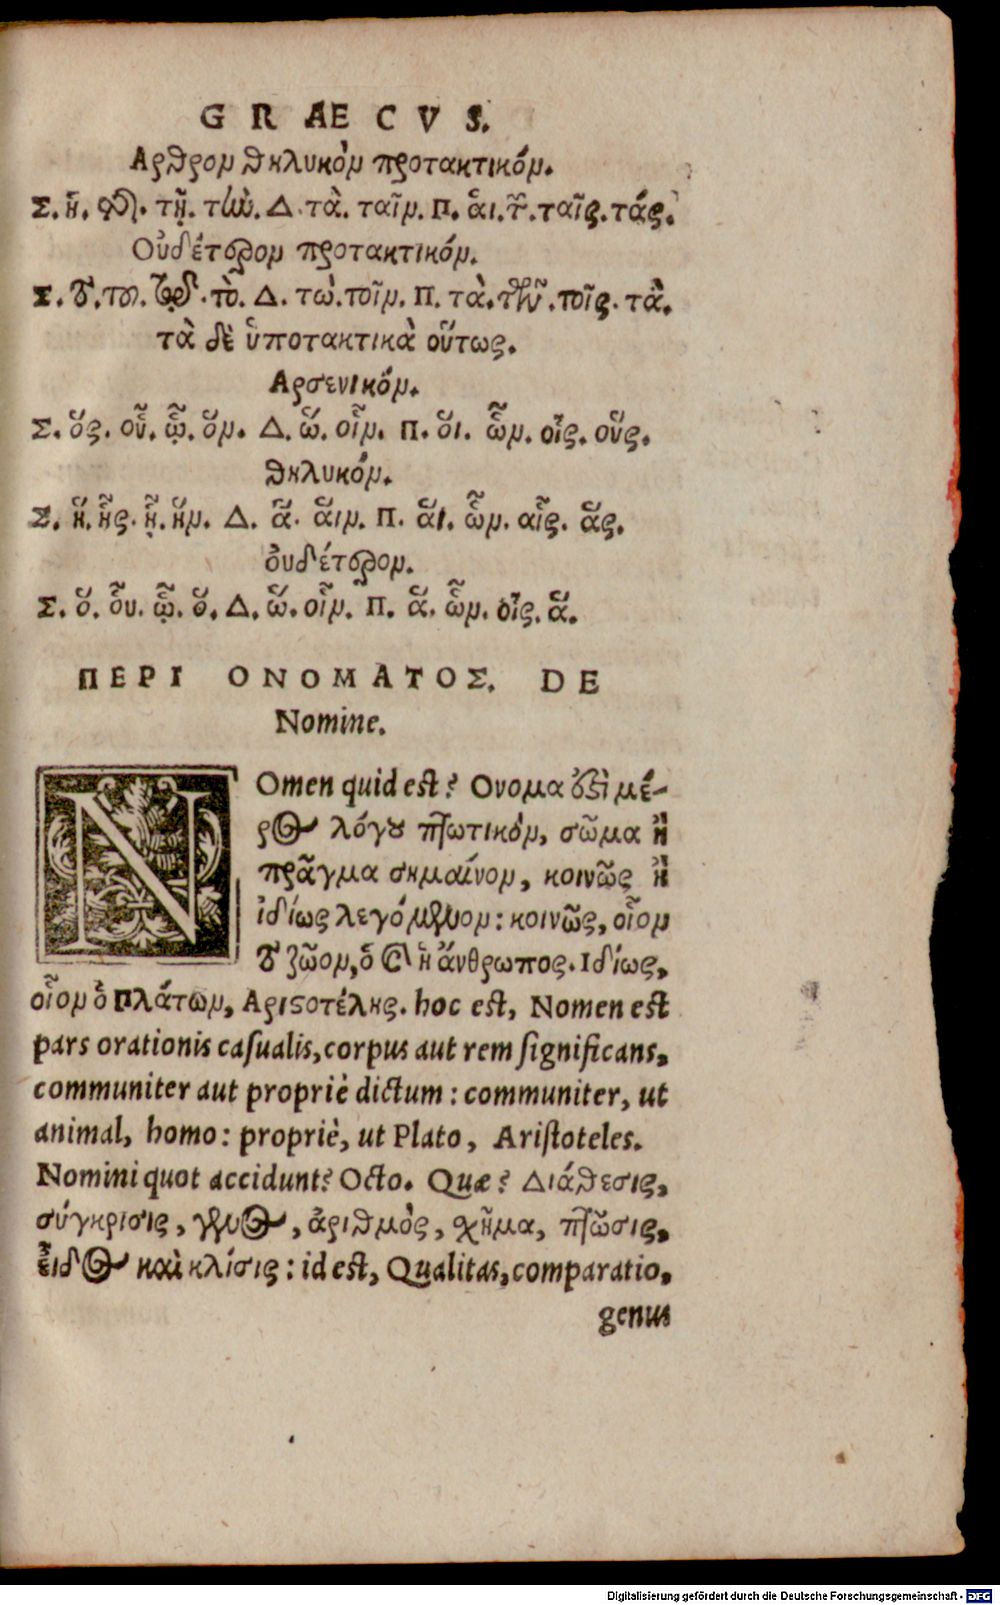 GRAECVS.
Αρθρον θηλυκὸν προτακτικόν.
Σ. ἡ. τῆς. τῇ. τὴν. Δ. τὰ. ταῖν. Π. ἁι. τῶν. ταῖς. τάς.
Οὐδέτερον προτακτικόν.
Σ. τὸ. τοῦ. τῷ. τὸ. Δ. τὼ. τοῖν. Π. τὰ. τῶν. τοῖς. τὰ.
τὰ δὲ ὑποτακτικὰ οὕτως.
Αρσενικόν.
Σ. ὅς. οὗ. ᾧ. ὅν. Δ. ὥ. οἷν. Π. ὅι. ὧν. οἷς. οὕς.
θηλυκόν.
Σ. ἥ. ἧς. ᾗ. ἥν. Δ. ἅ. ἅιν. Π. ἅι. ὧν. αἷς. ἅς.
ὀυδέτερον.
Σ. ὅ. ὗου. ᾧ. ὅ. Δ. ὥ. οἷν. Π. ἅ. ὧν. οἷς. ἅ.
ΠΕΡΙ ΟΝΟΜΑΤΟΣ. DE
Nomine.
NOmen quid est? Ονομα ὅτι μέ-
ρος λόγου πτωτικὸν, σῶμα ἢ
πρᾶγμα σημαίνον, κοινῶς ἢ
ἰδίως λεγόμενον: κοινῶς, οἷον
τὸ ζῶον, ὁ καὶ ἡ ἄνθρωπος. Ιδίως,
οἷον ὁ Πλάτων, Αριστοτέλης. hoc est, Nomen est
pars orationis casualis, corpus aut rem significans,
communiter aut propriè dictum: communiter, ut
animal, homo: propriè, ut Plato, Aristoteles.
Nomini quot accidunt? Octo. Quæ? Διάθεσις,
σύγκρισις, γένος, ἀριθμὸς, χῆμα, πτῶσις,
ἐιδος καὶ κλίσις: id est, Qualitas, comparatio,
genus
Digitalisierung gefördert durch die Deutsche Forschungsgemeinschaft - DFG